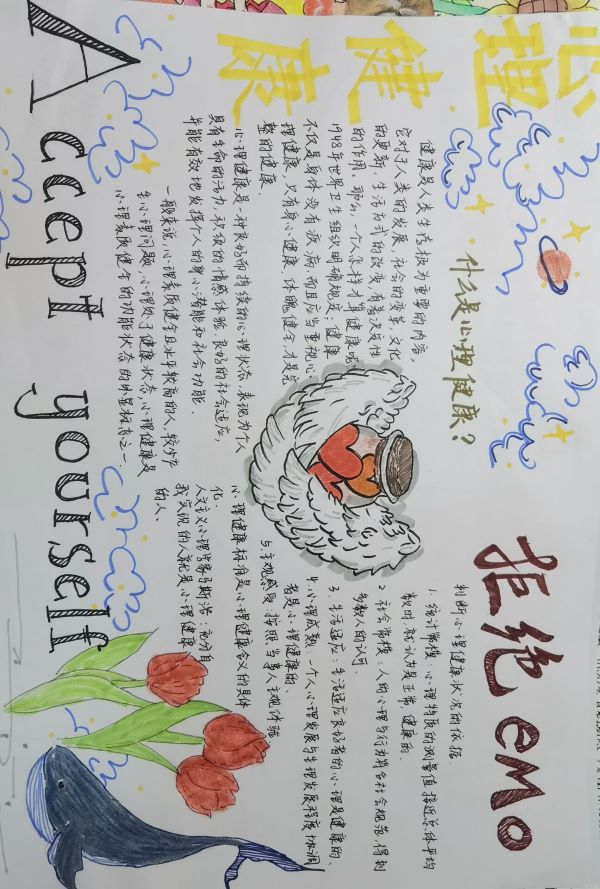 心理健康
拒绝 eMo
什么是心理健康？
健康是人类生存极为重要的内容，
它对于人类的发展，社会的变革，文化
的更新，生活方式的改变，有着决定性
的作用。那么，一个人怎样才算健康呢
1948年世界卫生组织明确规定：健康
不仅是身体没有疾病，而且应当重视心
理健康，只有身心健康、体魄健全，才是完
整的健康．
心理健康是一种良好而持续的心理状态，表现为个人
具有生命的活力，积极的情感体验，良好的社会适应，
并能有效地发挥个人的身心潜能和社会功能．
一般来说，心理素质健全且水平较高的人，较少产
生心理问题，心理处于健康状态，心理健康是
心理素质健全的功能状态的外显标志之一．
判断心理健康状况的依据．
1．统计常模：心理特质的测量值接近总体平均
数时，就认为是正常，健康的．
2 社会常模：人的心理与行为符合社会规范，得到
多数人的认可．
3．生活适应：生活适应良好者的心理是健康的、
4．心理成熟：一个人心理发展与生理发展程度协调
者是心理健康的．
5．主观感受：按照当事人主观体验
心理健康标准是心理健康含义的具体
化．
人文主义心理学家马斯洛：充分自
我实现的人就是心理健康
的人．
Accept yourself